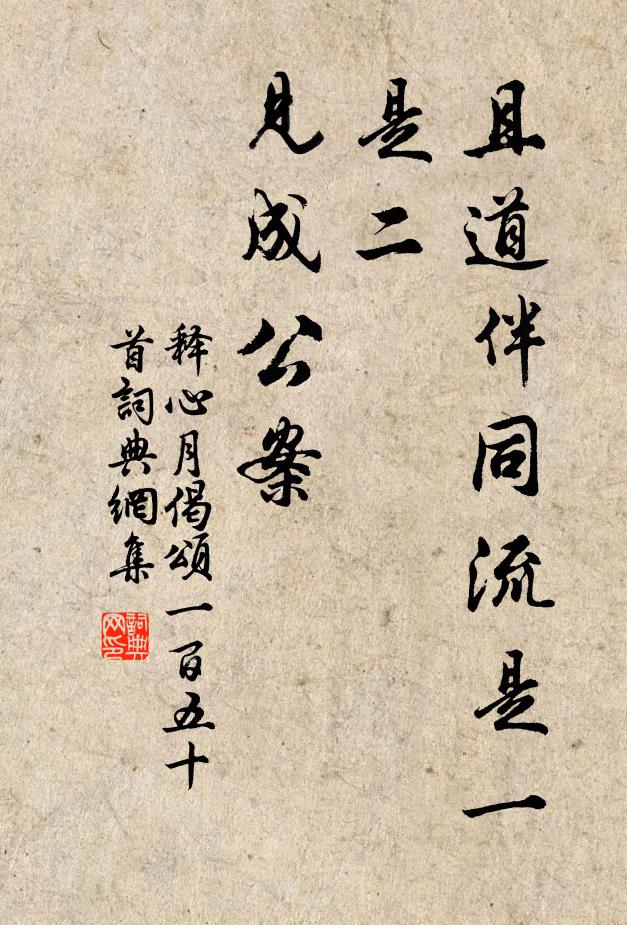 且道伴同流是一
是二
見成公案
释心月偈頌一百五十
首詞典網集
詞典网印